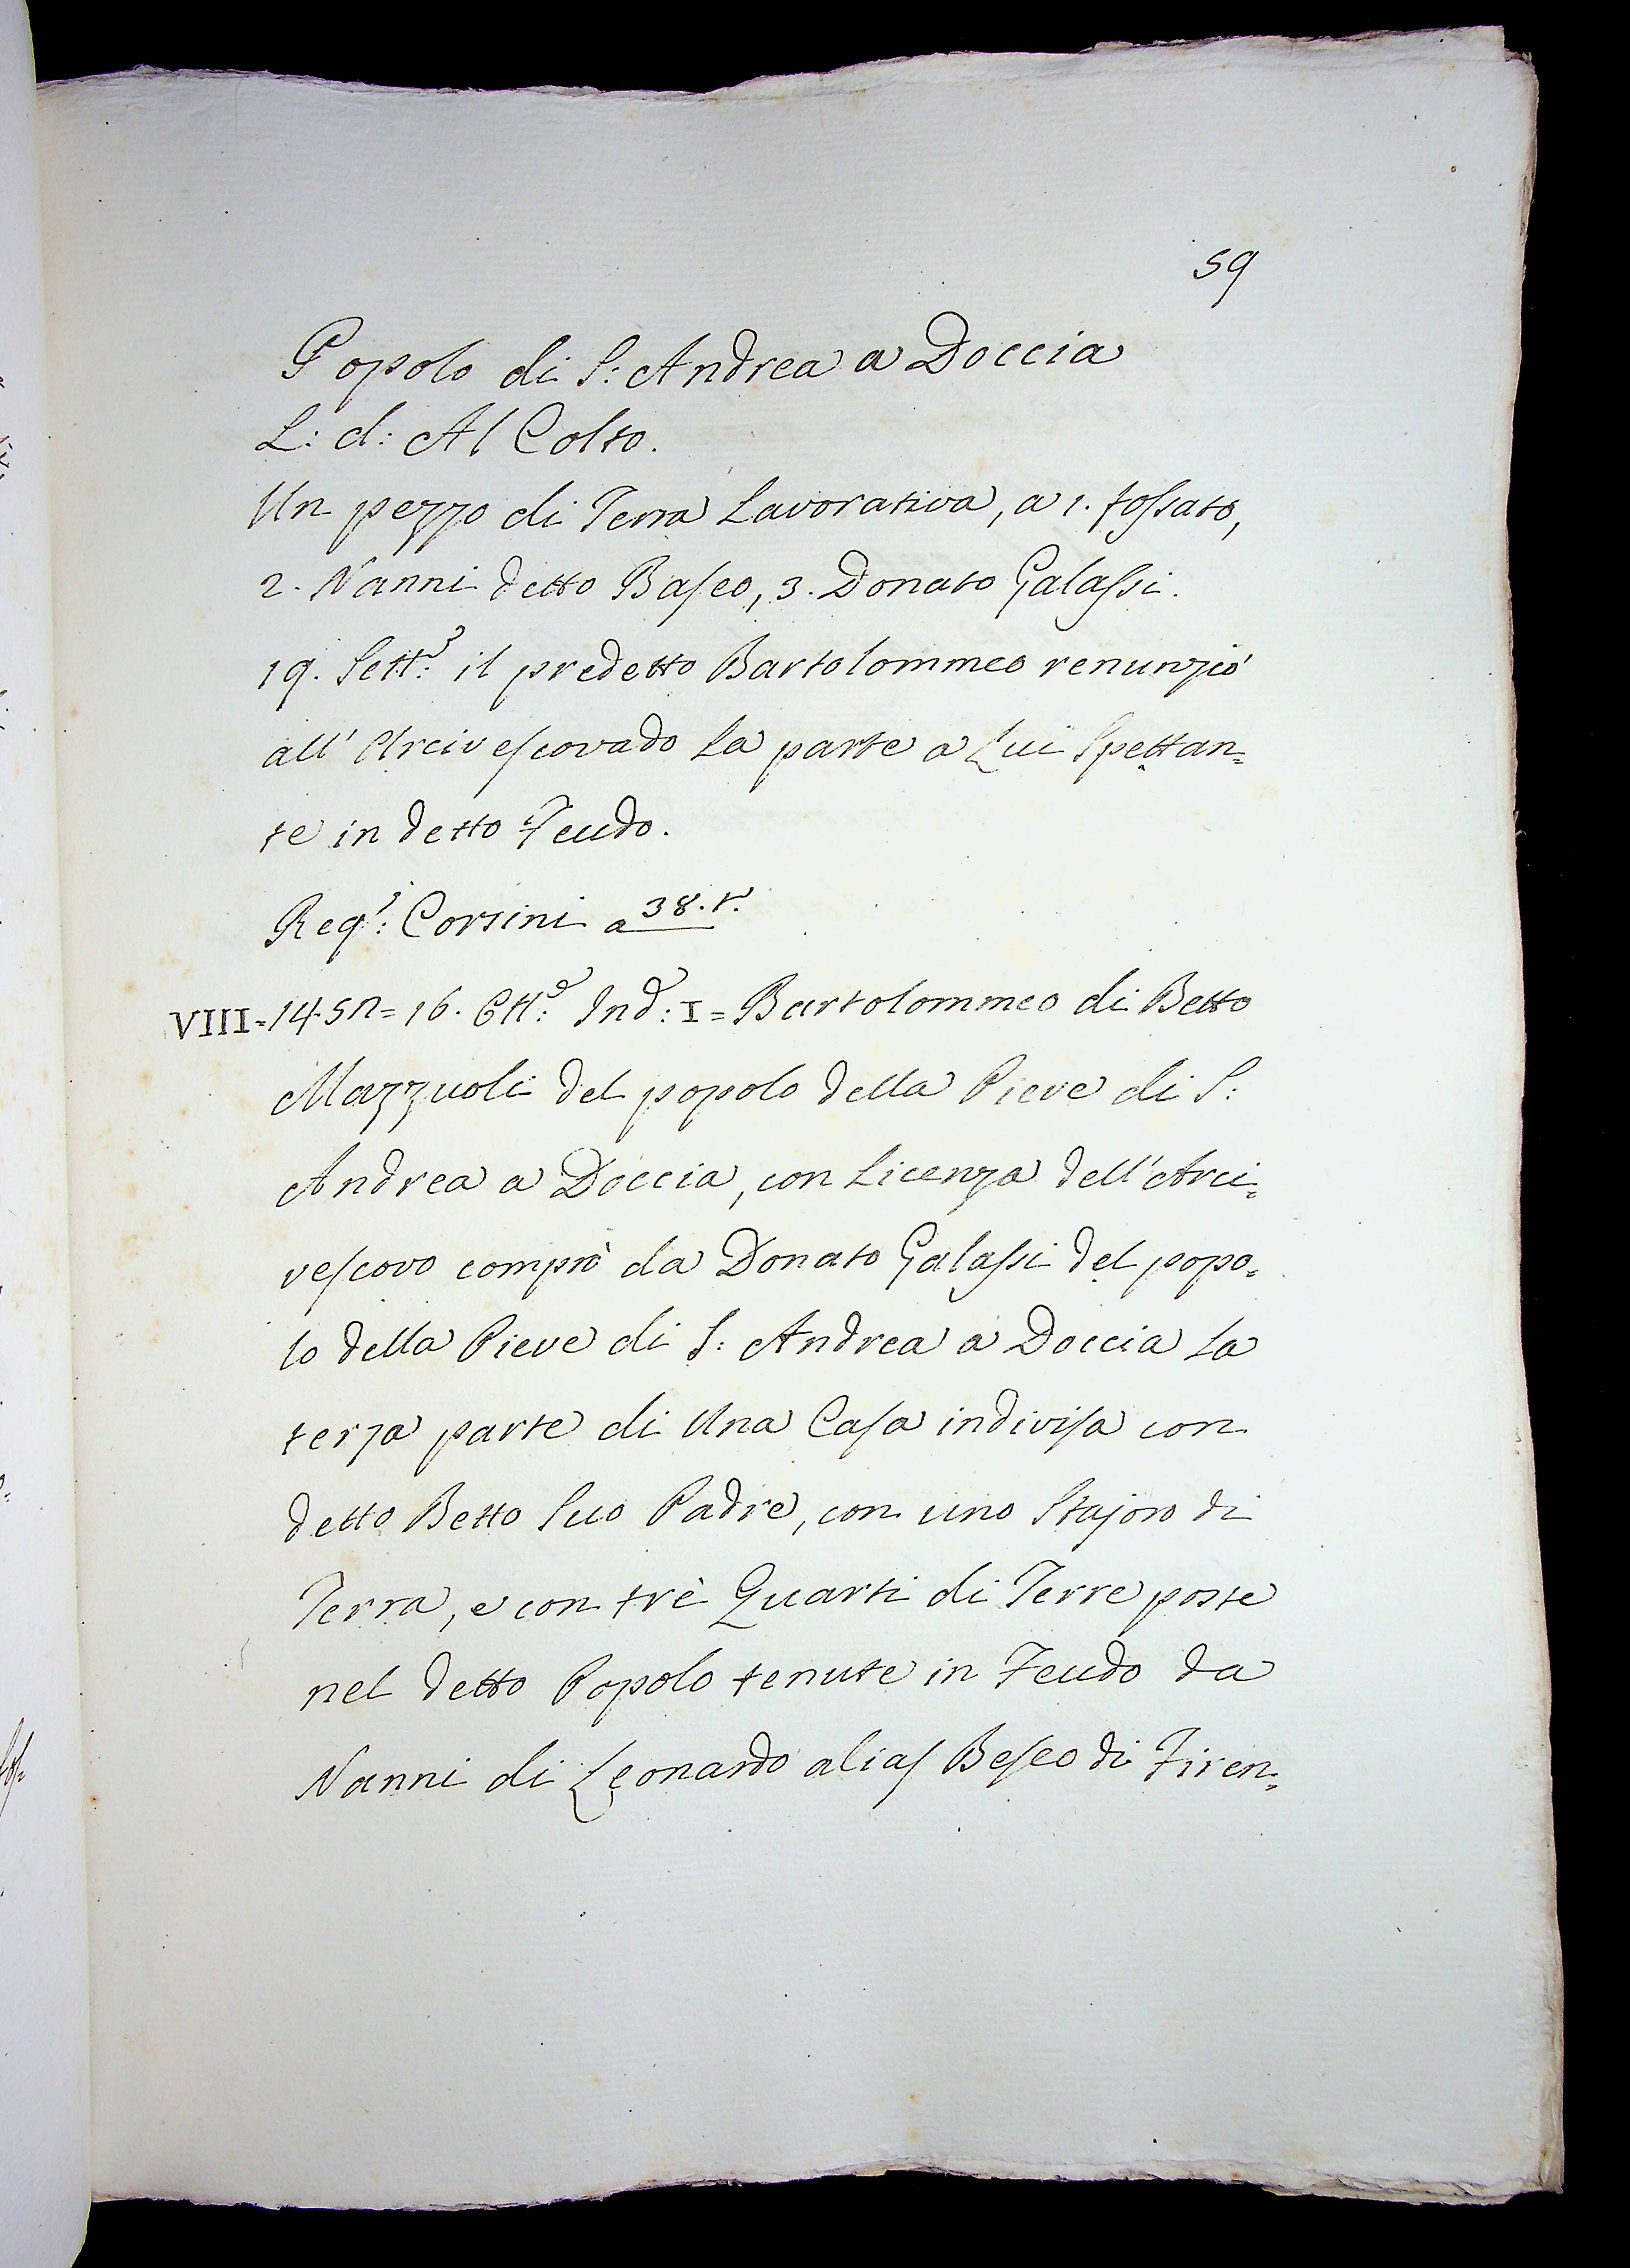 59
Popolo di S: Andrea a Doccia
L: d: Al Colto.
Un pezzo di Terra Lavorativa, a 1. fossato,
2. Nanni detto Baseo, 3. Donato Galassi.
19. Sett:e il predetto Bartolommeo renunziò
all' Arcivescovado la parte a Lui Spettan=
te in detto Feudo.
Reg:º Corsini a 38.t.
VIII=14.52= 16. Ott:e Ind: I= Bartolommeo di Betto
Mazzuoli del popolo della Pieve di S:
Andrea a Doccia, con Licenza dell' Arci=
vescovo comprò da Donato Galassi del popo=
lo della Pieve di S: Andrea a Doccia la
terza parte di Una Casa indivisa con
detto Betto Suo Padre, con uno Stajoro di
Terra, e con trè Quarti di Terre poste
nel detto Popolo tenute in Feudo da
Nanni di Leonardo alias Beseo di Firen=